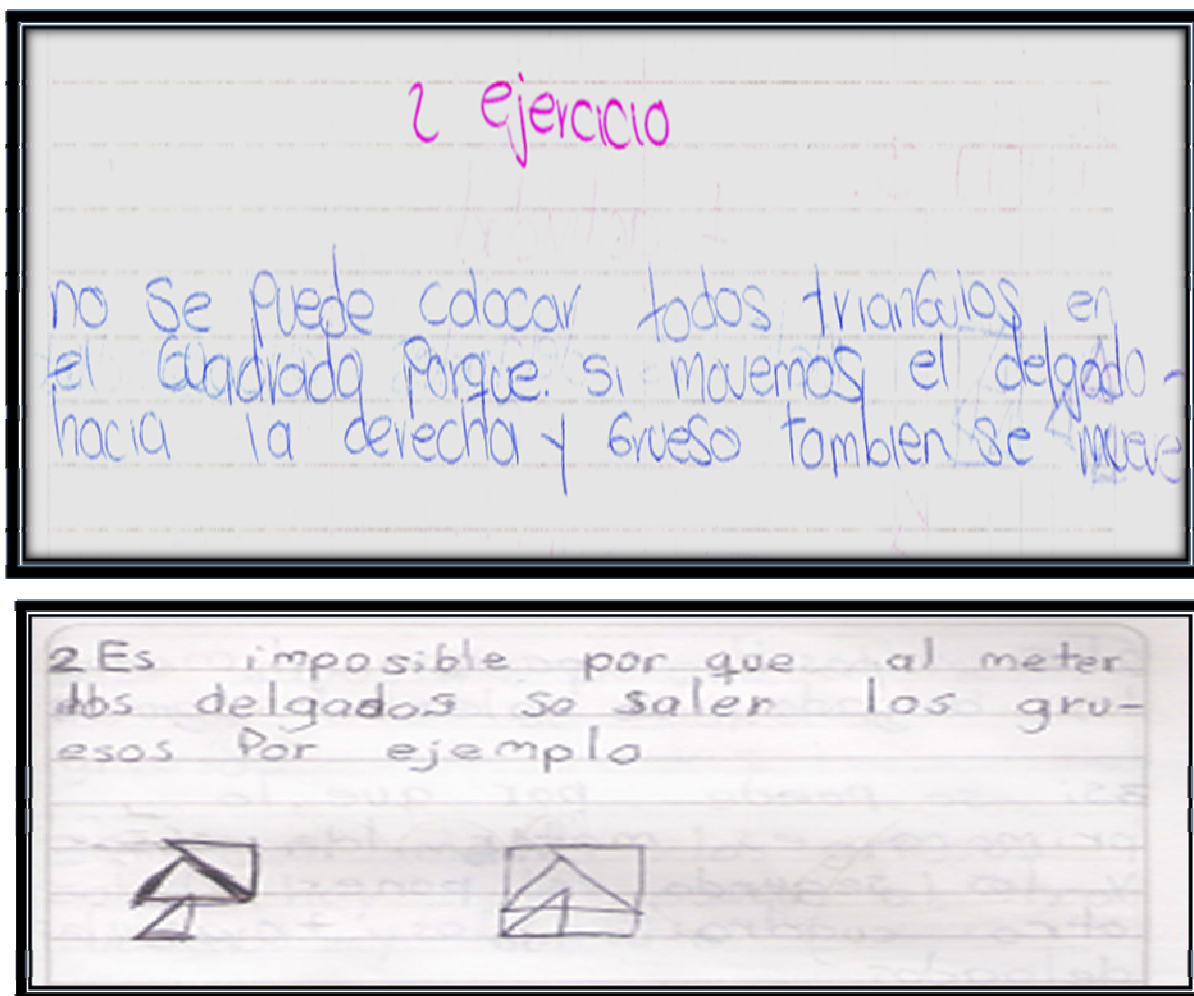 2 ejercicio
no se puede colocar todos triangulos en
el cuadrado porque. si movemos el delgado -
hacia la derecha y Grueso tambien se mueve
2 Es imposible por que al meter
los delgados se salen los gru-
esos Por ejemplo